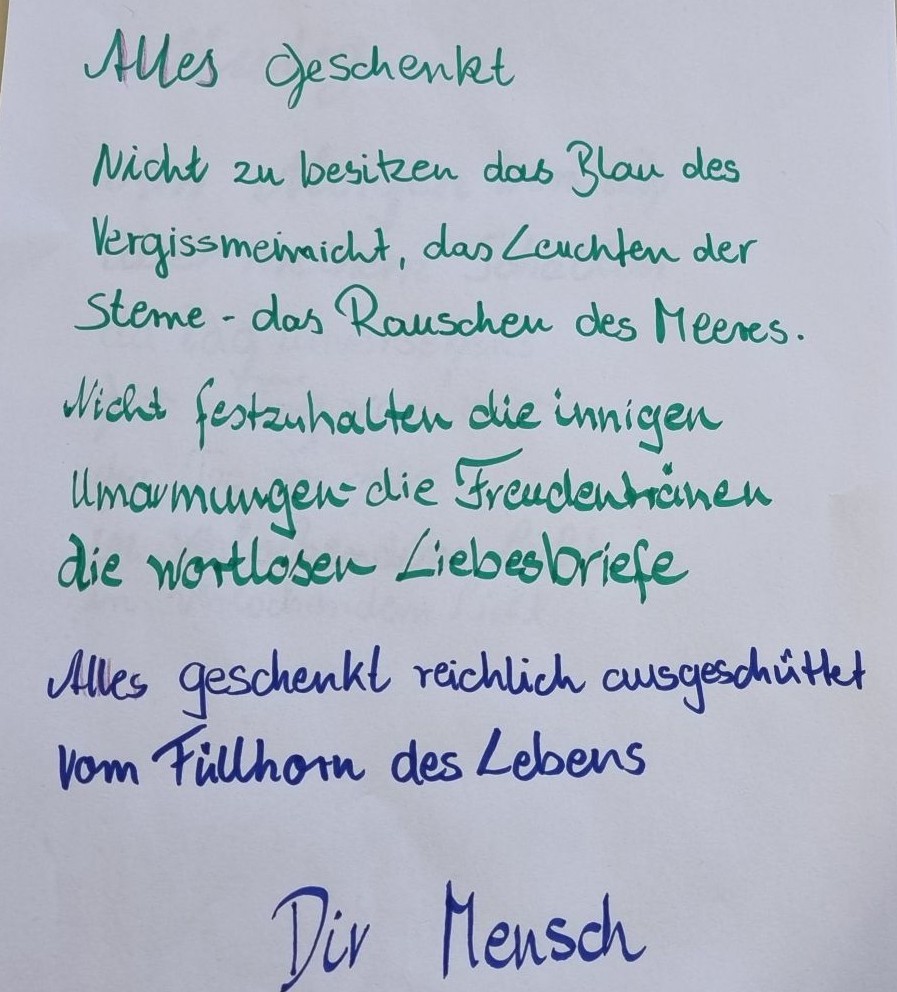 Alles geschenkt
Nicht zu besitzen das Blau des
Vergissmeinnicht, das Leuchten der
Sterne - das Rauschen des Meeres.
Nicht festzuhalten die innigen
Umarmungen - die Freudentränen
die wortlosen Liebesbriefe
Alles geschenkt reichlich ausgeschüttet
vom Füllhorn des Lebens
Dir Mensch